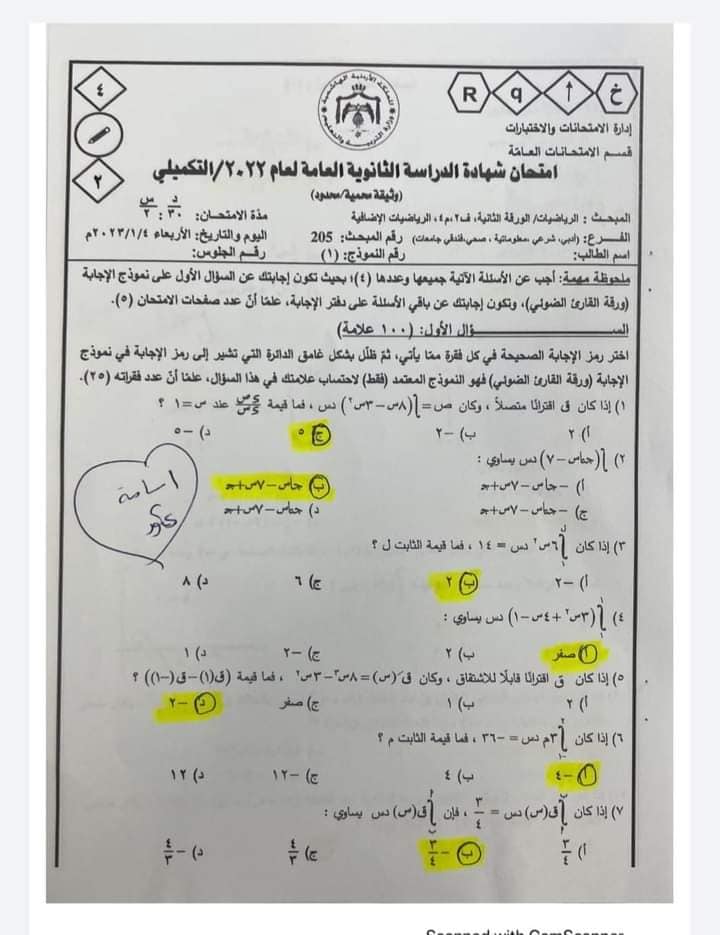 ٤
٢
R
q
أ
خ
المملكة الأردنية الهاشمية
وزارة التربية والتعليم
إدارة الامتحانات والاختبارات
قسم الامتحانات العامة
امتحان شهادة الدراسة الثانوية العامة لعام ٢٠٢٢/التكميلي
(وثيقة محمية/محدود)
المبحث: الرياضيات/ الورقة الثانية، ف٢، م٤، الرياضيات الإضافية
مدة الامتحان: ٣٠ : ٢ د س
الفرع: (أدبي، شرعي، معلوماتية، صحي، فندقي جامعات) رقم المبحث: 205
اليوم والتاريخ: الأربعاء ٢٠٢٣/١/٤م
اسم الطالب: رقم النموذج: (١) رقم الجلوس:
ملحوظة مهمة: أجب عن الأسئلة الآتية جميعها وعددها (٤)؛ بحيث تكون إجابتك عن السؤال الأول على نموذج الإجابة
(ورقة القارئ الضوئي)، وتكون إجابتك عن باقي الأسئلة على دفتر الإجابة، علمًا أنّ عدد صفحات الامتحان (٥).
الســـؤال الأول: (١٠٠ علامة)
اختر رمز الإجابة الصحيحة في كل فقرة ممّا يأتي، ثمّ ظلّل بشكل غامق الدائرة التي تشير إلى رمز الإجابة في نموذج
الإجابة (ورقة القارئ الضوئي) فهو النموذج المعتمد (فقط) لاحتساب علامتك في هذا السؤال، علمًا أنّ عدد فقراته (٢٥).
١) إذا كان ق اقترانًا متصلاً ، وكان ص = ∫(٨س – ٣س٢) دس ، فما قيمة دص/دس عند س = ١ ؟
أ) ٢ ب) –٢ ج) ٥ د) –٥
٢) ∫(جتاس – ٧) دس يساوي :
أ) – جاس – ٧س + جـ ب) جاس – ٧س + جـ
ج) – جتاس – ٧س + جـ د) جتاس – ٧س + جـ
اسامة
٣) إذا كان ∫١ل ٦س٢ دس = ١٤ ، فما قيمة الثابت ل ؟
أ) –٢ ب) ٢ ج) ٦ د) ٨
٤) ∫(٣س٢ + ٤س – ١) دس يساوي :
أ) صفر ب) ٢ ج) –٢ د) ١
٥) إذا كان ق اقترانًا قابلًا للاشتقاق ، وكان قَ(س) = ٨س٣ – ٣س٢ ، فما قيمة (ق(١) – ق(–١)) ؟
أ) ٢ ب) ١ ج) صفر د) –٢
٦) إذا كان ∫ ٣م دس = –٣٦ ، فما قيمة الثابت م ؟
أ) –٤ ب) ٤ ج) –١٢ د) ١٢
٧) إذا كان ∫أب ق(س) دس = ٣/٤ ، فإن ∫بأ ق(س) دس يساوي :
أ) ٣/٤ ب) –٣/٤ ج) ٤/٣ د) –٤/٣